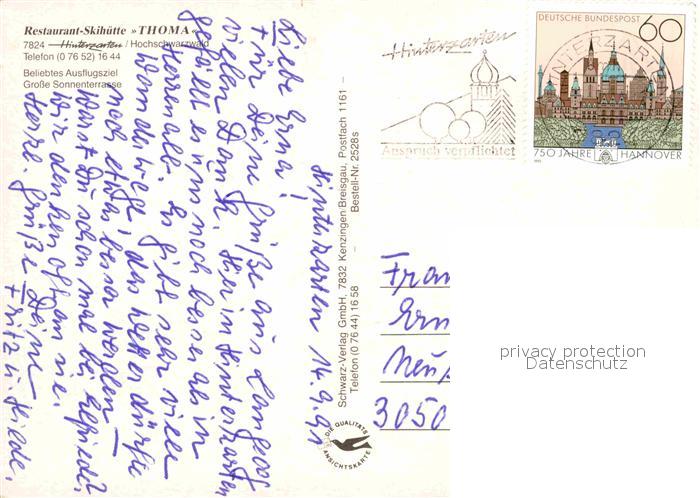 Restaurant-Skihütte »THOMA«
7824 Hinterzarten / Hochschwarzwald
Telefon (0 76 52) 16 44
Beliebtes Ausflugsziel
Große Sonnenterrasse
Hinterzarten 14.9.91
Liebe Erna!
Für Deine Grüße aus Langeoog
vielen Dank. Hier in Hinterzarten
gefällt es uns noch besser als in
Herrenalb. Es gibt sehr viele
Wanderwege, das Wetter dürfte
noch etwas besser werden.
Warst Du schon mal bei Elfriede?
Wir denken oft an sie.
Herzl. Grüße Deine
Fritz u. Hilde.
Schwarz-Verlag GmbH, 7832 Kenzingen/Breisgau, Postfach 1161 –
Telefon (0 76 44) 16 58 – Bestell-Nr. 2528s
DIE QUALITÄTS
ANSICHTSKARTE
Hinterzarten
Anspruch verpflichtet
DEUTSCHE BUNDESPOST 60
HINTERZARTEN
750 JAHRE HANNOVER
Frau
Ern
Neu
3050
privacy protection
Datenschutz